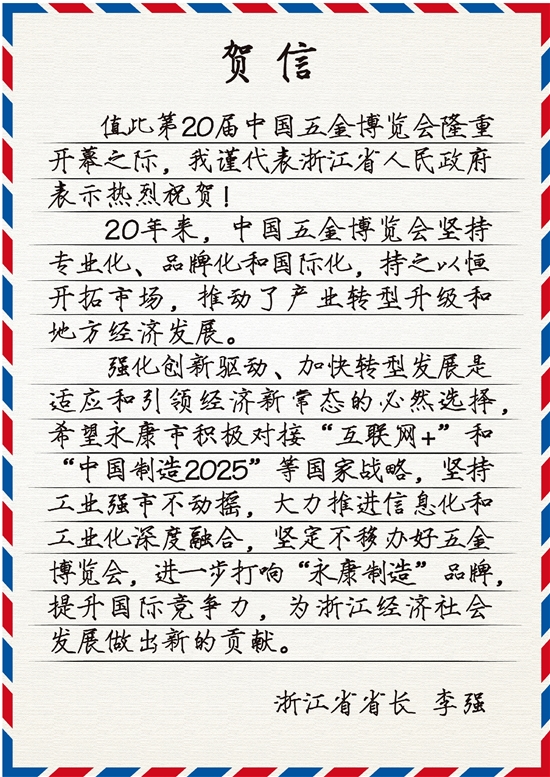 贺信
值此第20届中国五金博览会隆重
开幕之际，我谨代表浙江省人民政府
表示热烈祝贺！
20年来，中国五金博览会坚持
专业化、品牌化和国际化，持之以恒
开拓市场，推动了产业转型升级和
地方经济发展。
强化创新驱动、加快转型发展是
适应和引领经济新常态的必然选择，
希望永康市积极对接“互联网+”和
“中国制造2025”等国家战略，坚持
工业强市不动摇，大力推进信息化和
工业化深度融合，坚定不移办好五金
博览会，进一步打响“永康制造”品牌，
提升国际竞争力，为浙江经济社会
发展做出新的贡献。
浙江省省长 李强